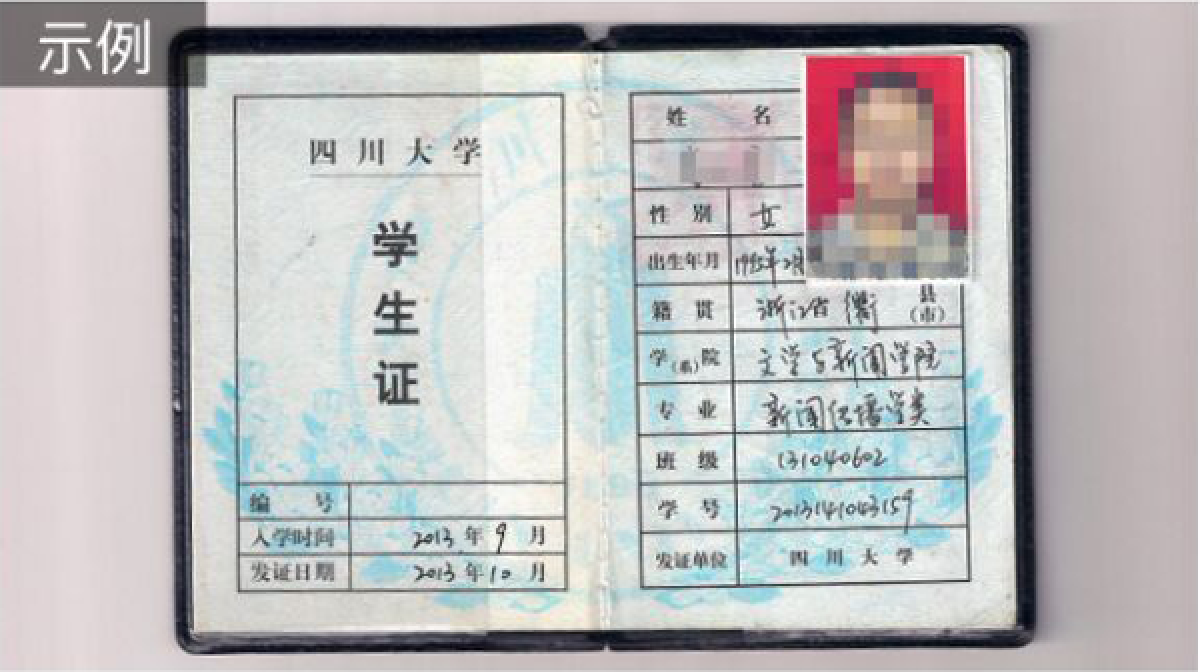 示例
四川大学
学生证
编 号
入学时间 2013 年 9 月
发证日期 2013 年 10 月
姓 名
性 别 女
出生年月 1995年2月
籍 贯 浙江省 衢 县(市)
学(系)院 文学与新闻学院
专 业 新闻传播学类
班 级 131040602
学 号 2013141043159
发证单位 四川大学